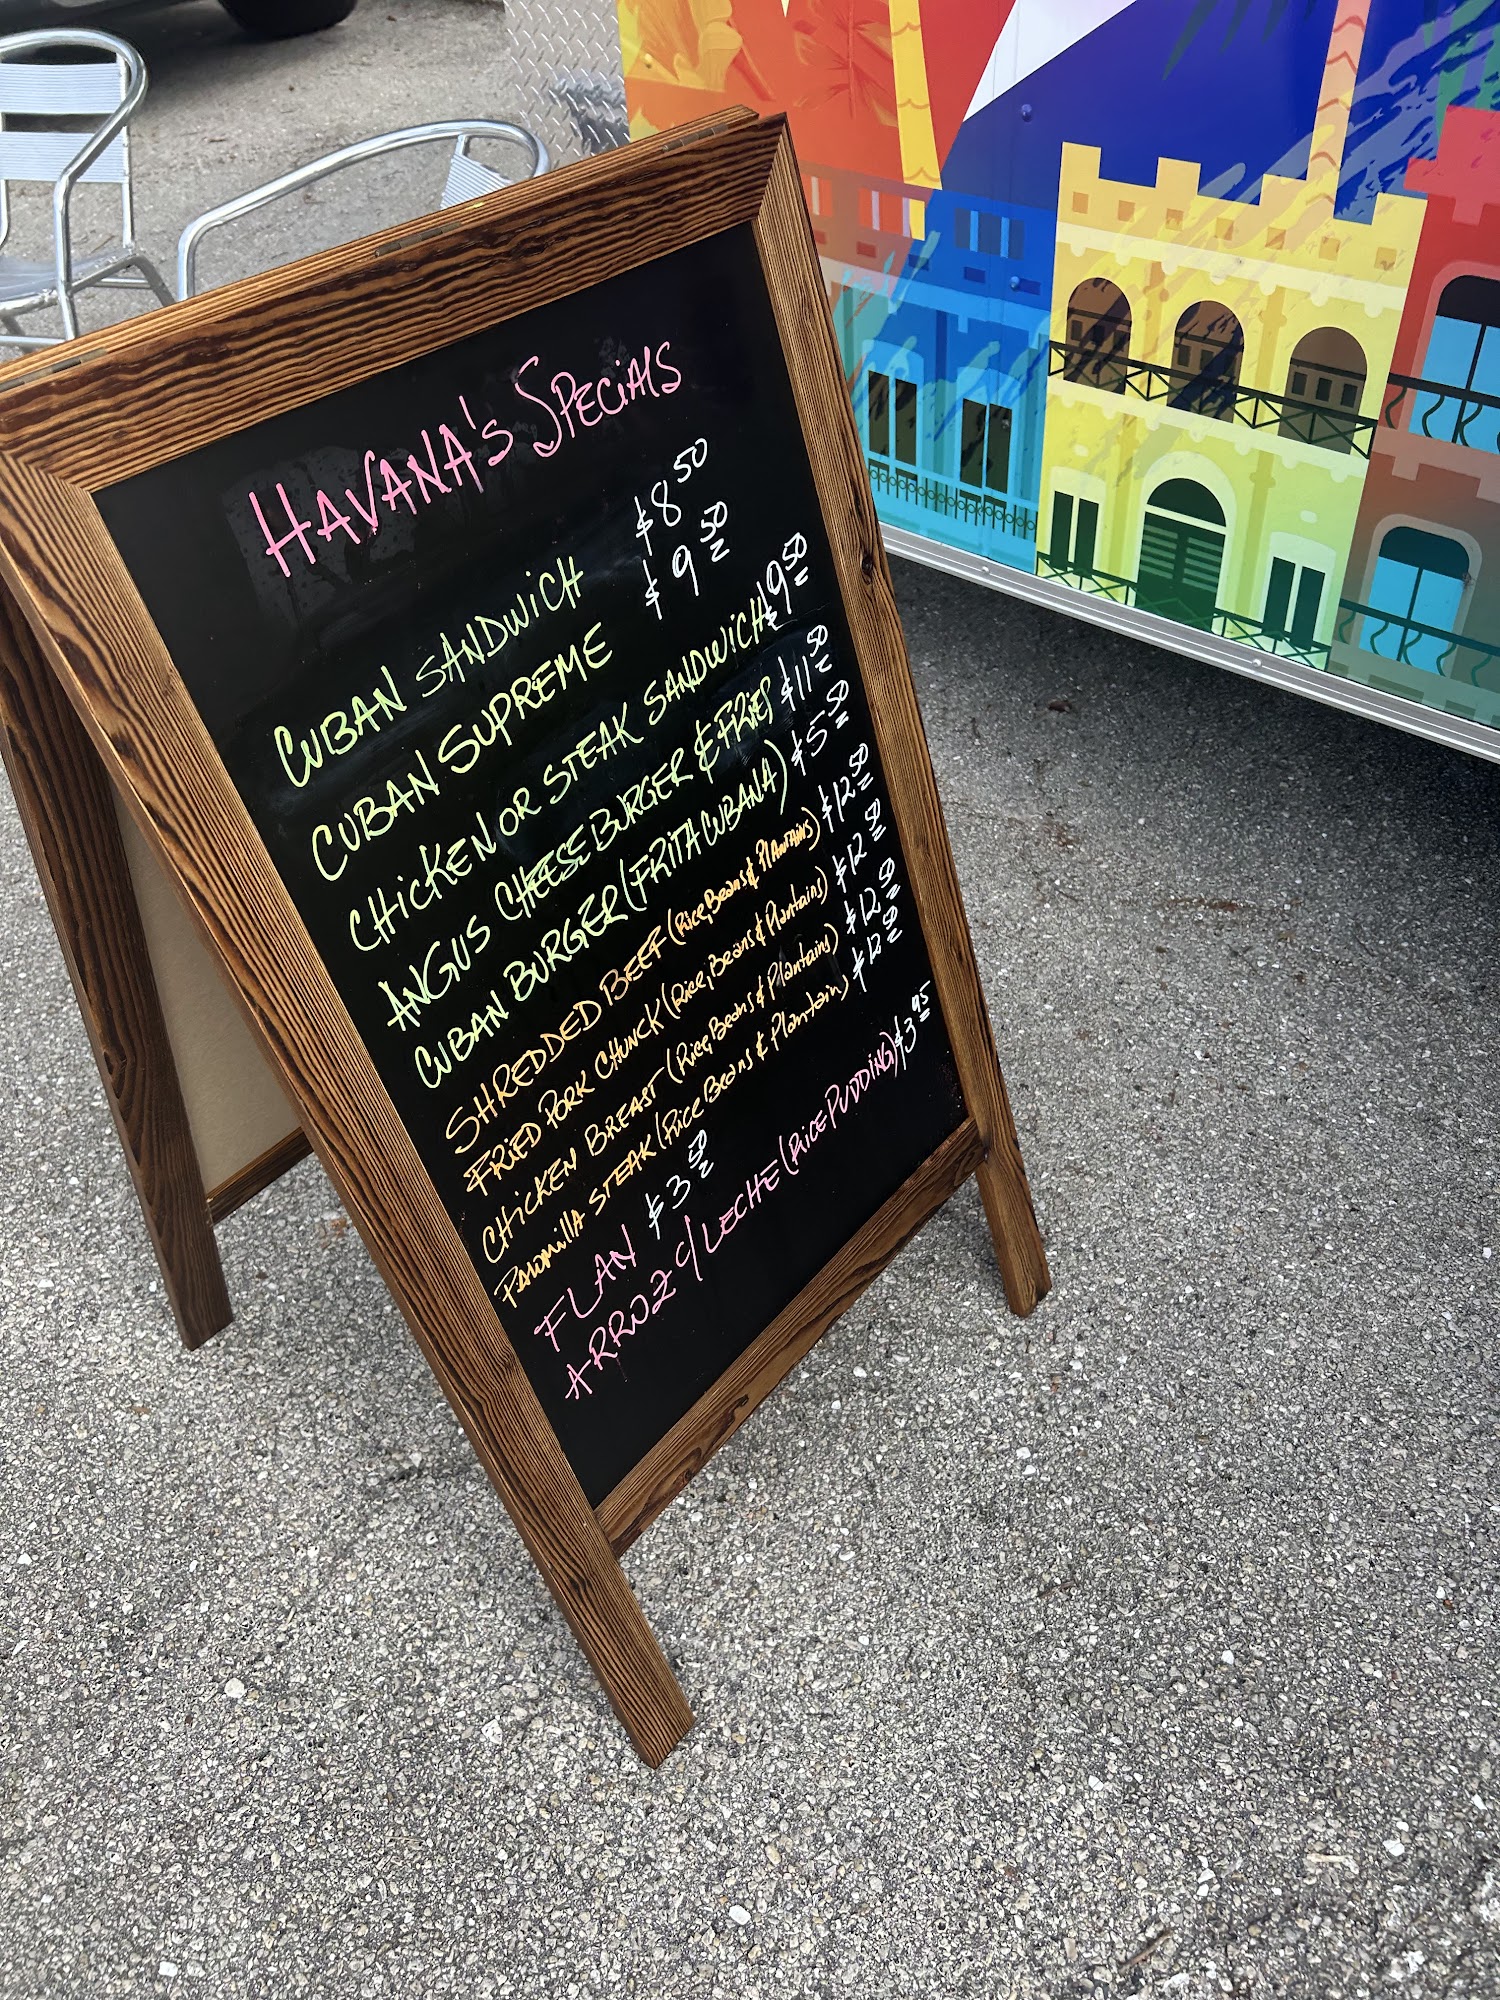 HAVANA'S SPECiAlS
CUBAN SANDWiCH $8 50
CUBAN SUPREME $9 50
CHiCKEN OR STEAK SANDWiCH $9 50
ANGUS CHEESE BURGER & FRiES $11 50
CUBAN BURGER (FRITA CUBANA) $5 50
SHREDDED BEEF (Rice, Beans & Plantains) $12 50
FRiED PORK CHUNCK (Rice, Beans & Plantains) $12 50
CHiCKEN BREAST (Rice, Beans & Plantains) $12 50
PAlOMillA STEAK (Rice Beans & Plantain) $12 50
FLAN $3 50
ARROZ c/ LECHE (RiCE PUDDiNG) $3 95